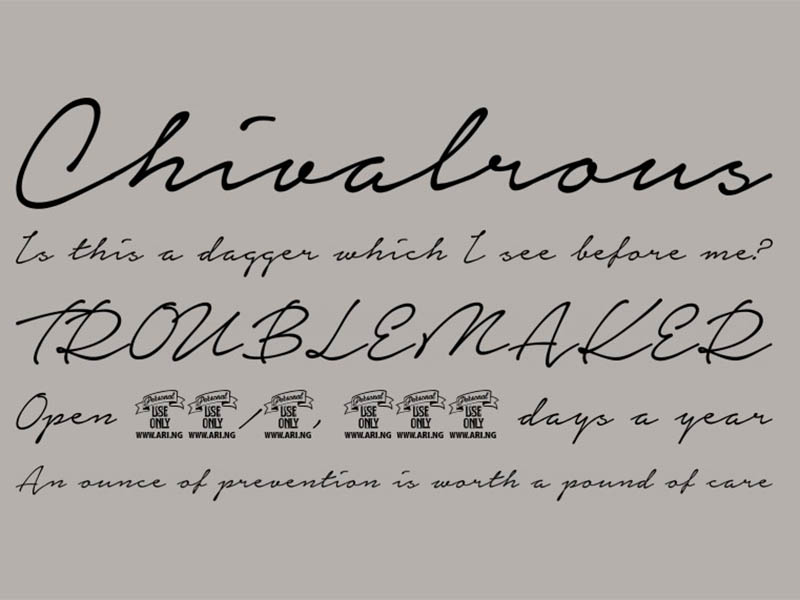 Chivalrous
Is this a dagger which I see before me?
TROUBLEMAKER
Open Personal USE ONLY WWW.ARI.NG Personal USE ONLY WWW.ARI.NG / Personal USE ONLY WWW.ARI.NG , Personal USE ONLY WWW.ARI.NG Personal USE ONLY WWW.ARI.NG Personal USE ONLY WWW.ARI.NG days a year
An ounce of prevention is worth a pound of care